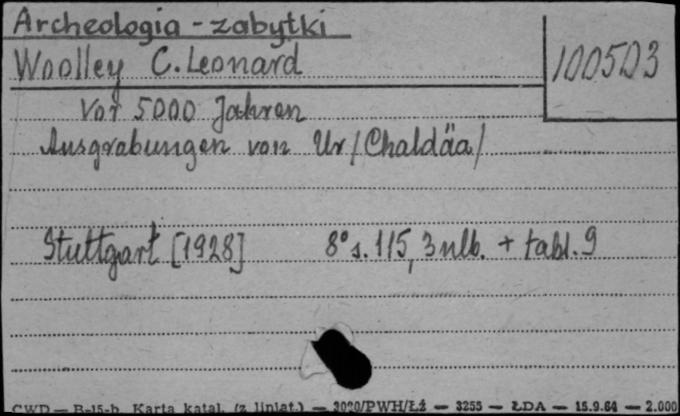 Archeologia - zabytki
Woolley C. Leonard
100503
Vor 5000 Jahren
Ausgrabungen von Ur /Chaldäa/
Stuttgart [1928] 8° s. 115, 3 nlb. + tabl. 9
CWD — B-15-b Karta katal. (z liniat.) — 3020/PWH/Łź — 3255 — ŁDA — 15.9.64 — 2.000